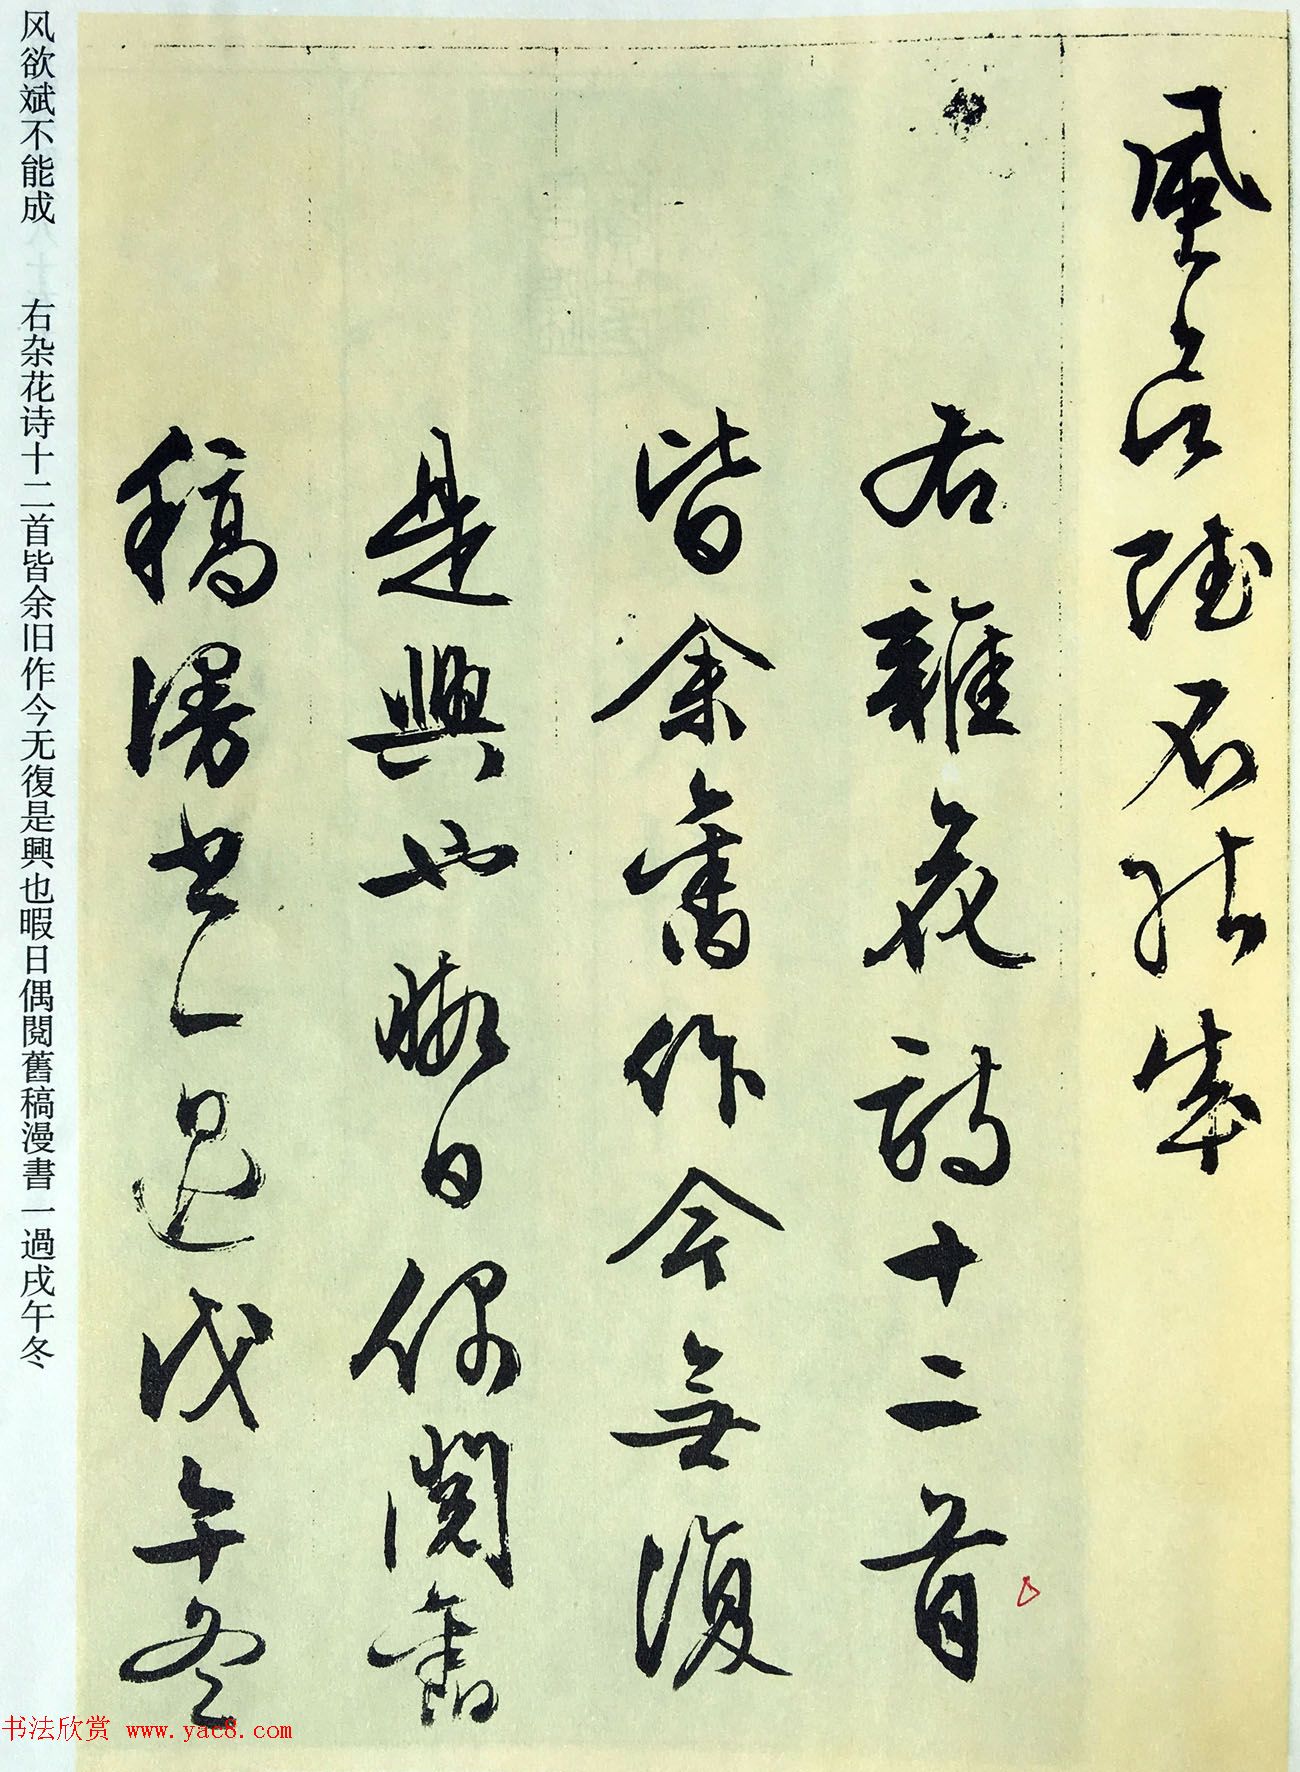 風欲賦不能成
右雜花詩十二首
皆余舊作今無復
是興也暇日偶閱舊
稿漫書一過戊午冬
风欲斌不能成　右杂花诗十二首皆余旧作今无復是興也暇日偶閱舊稿漫書一過戌午冬
书法欣赏 www.yac8.com